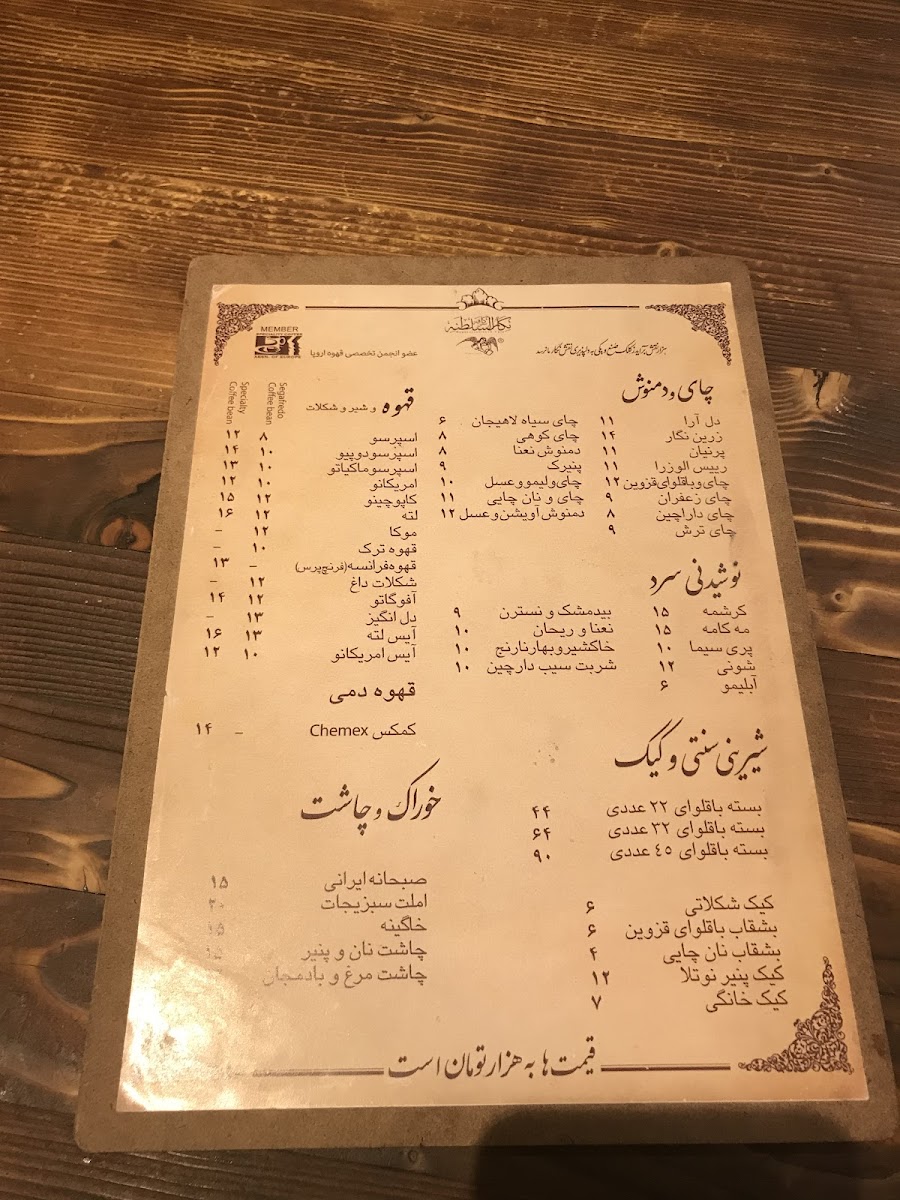 نگارالسلطنه
MEMBER
SPECIALITY COFFEE
ASSN. OF EUROPE
عضو انجمن تخصصی قهوه اروپا
چای و دمنوش
دل آرا ۱۱
زرین نگار ۱۴
پرنیان ۱۱
رییس الوزرا ۱۱
چای و باقلوای قزوین ۱۲
چای زعفران ۹
چای داراچین ۸
چای ترش ۹
چای سیاه لاهیجان ۶
چای کوهی ۸
دمنوش نعنا ۸
پنیرک ۹
چای و لیمو و عسل ۱۰
چای و نان چایی ۱۱
دمنوش آویشن و عسل ۱۲
نوشیدنی سرد
کرشمه ۱۵
مه کامه ۱۵
پری سیما ۱۰
شونی ۱۲
آبلیمو ۶
بیدمشک و نسترن ۹
نعنا و ریحان ۱۰
خاکشیر و بهارنارنج ۱۰
شربت سیب دارچین ۱۰
شیرینی سنتی و کیک
بسته باقلوای ۲۲ عددی ۴۴
بسته باقلوای ۳۲ عددی ۶۴
بسته باقلوای ۴۵ عددی ۹۰
کیک شکلاتی ۶
بشقاب باقلوای قزوین ۶
بشقاب نان چایی ۴
کیک پنیر نوتلا ۱۲
کیک خانگی ۷
قهوه و شیر و شکلات
Segafredo Coffee bean
Specialty Coffee bean
اسپرسو ۸ ۱۲
اسپرسو دوپیو ۱۰ ۱۴
اسپرسو ماکیاتو ۱۰ ۱۳
امریکانو ۱۰ ۱۲
کاپوچینو ۱۲ ۱۵
لته ۱۲ ۱۶
موکا ۱۲ –
قهوه ترک ۱۰ –
قهوه فرانسه (فرنچ پرس) – ۱۳
شکلات داغ ۱۲ –
آفوگاتو ۱۲ ۱۴
دل انگیز ۱۳ –
آیس لته ۱۳ ۱۶
آیس امریکانو ۱۰ ۱۲
قهوه دمی
کمکس Chemex – ۱۴
خوراک و چاشت
صبحانه ایرانی ۱۵
املت سبزیجات
خاگینه ۱۵
چاشت نان و پنیر
چاشت مرغ و بادمجان
قیمت ها به هزار تومان است